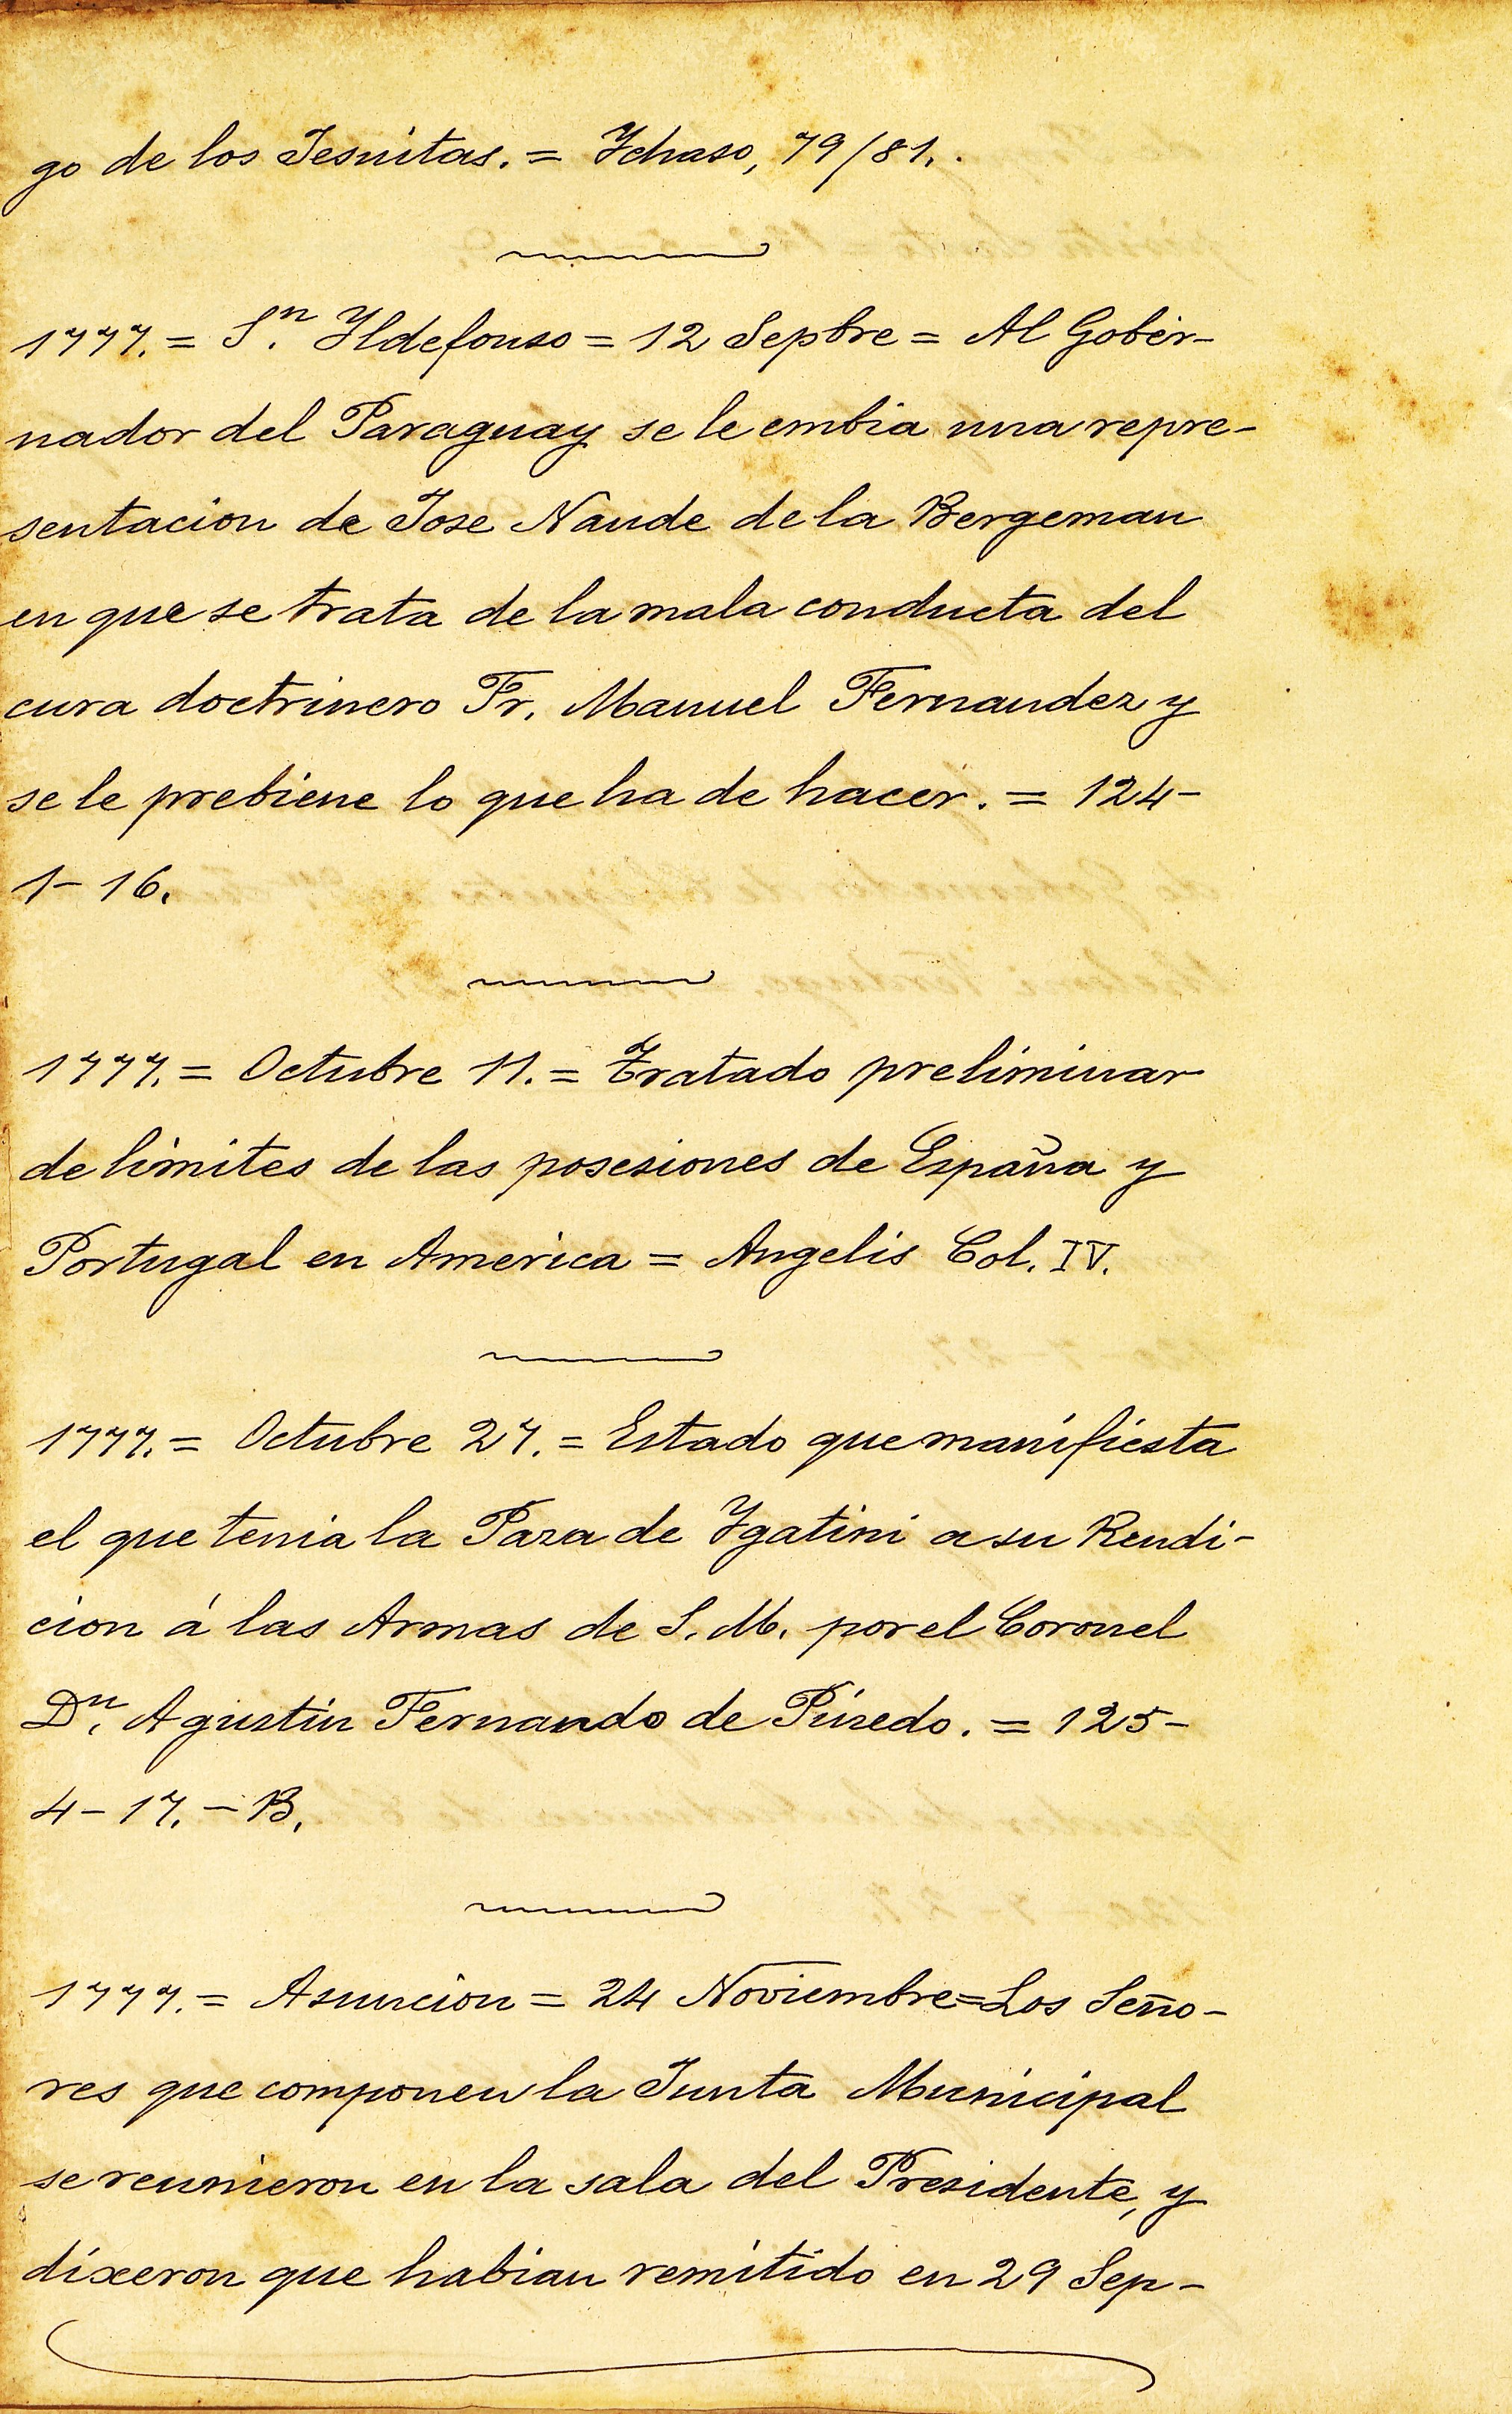 go de los Jesuitas. = Ychaso, 79/81.
1777. = Sn. Yldefonso = 12 Sepbre = Al Gober-
nador del Paraguay se le embia una repre-
sentacion de Jose Naude de la Bergeman
en que se trata de la mala conducta del
cura doctrinero Fr. Manuel Fernandez y
se le prebiene lo que ha de hacer. = 124-
1-16.
1777. = Octubre 11. = Tratado preliminar
de limites de las posesiones de España y
Portugal en America = Angelis Col. IV.
1777. = Octubre 27. = Estado que manifiesta
el que tenia la Paza de Ygatimi a su Rendi-
cion á las Armas de S. M. por el Coronel
Dn. Agustin Fernando de Pinedo. = 125-
4-17. - B.
1777. = Asuncion = 24 Noviembre = Los Seño-
res que componen la Junta Municipal
se reunieron en la sala del Presidente, y
dixeron que habian remitido en 29 Sep-